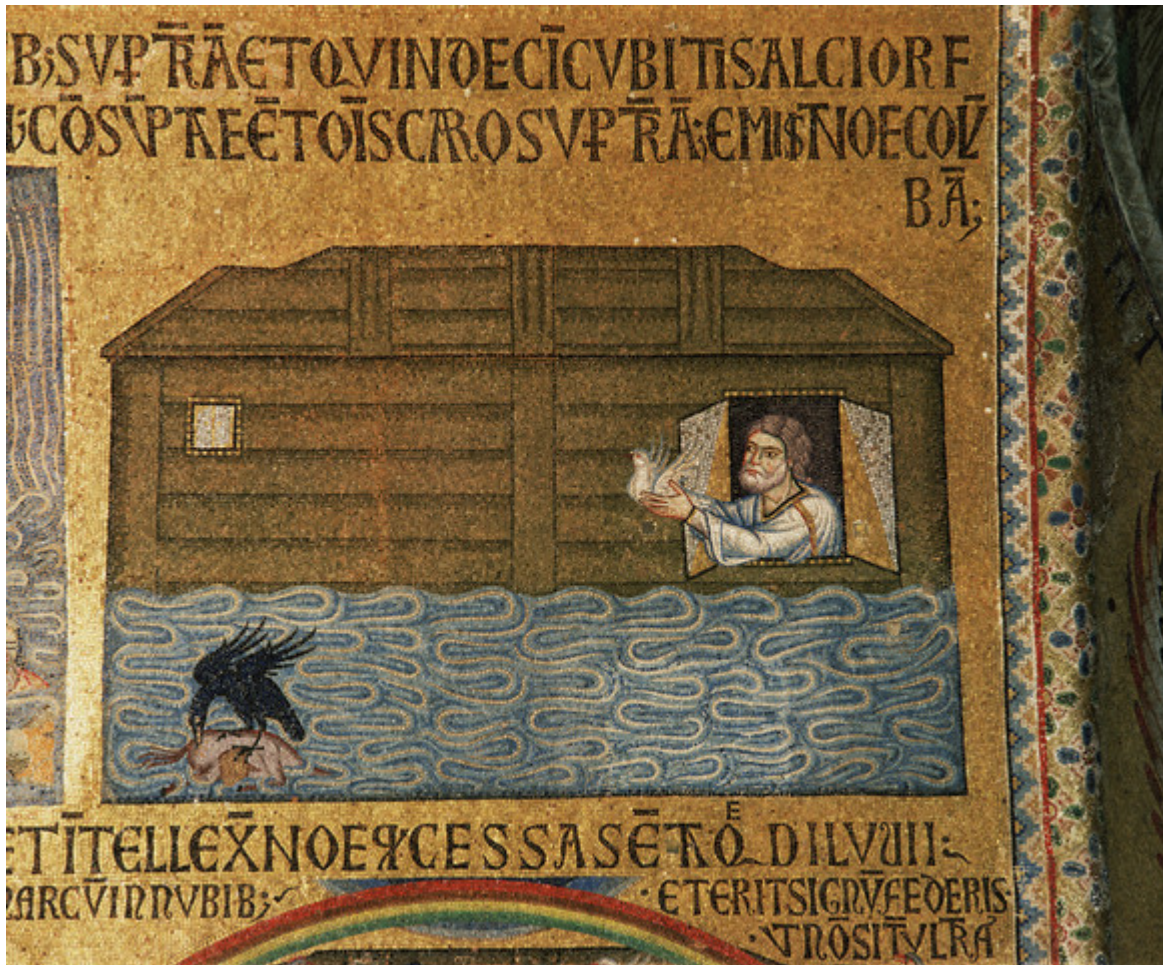 B;SVP̄ TR̄ĀETQVINDECĪCVBITISALCIORF
CŌSV̄PTAEĒTOĪSCAROSVP̄ TR̄Ā;EMIS̄ITNOECOLV̄
BĀ;
ETĪTELLEX̄NOEꝙCESSASĒTAQ̊E DILVVII
ARCV̄INNVBIB; ·ETERITSIGNV̄FEDERIS
·VTNŌSITVLTRA